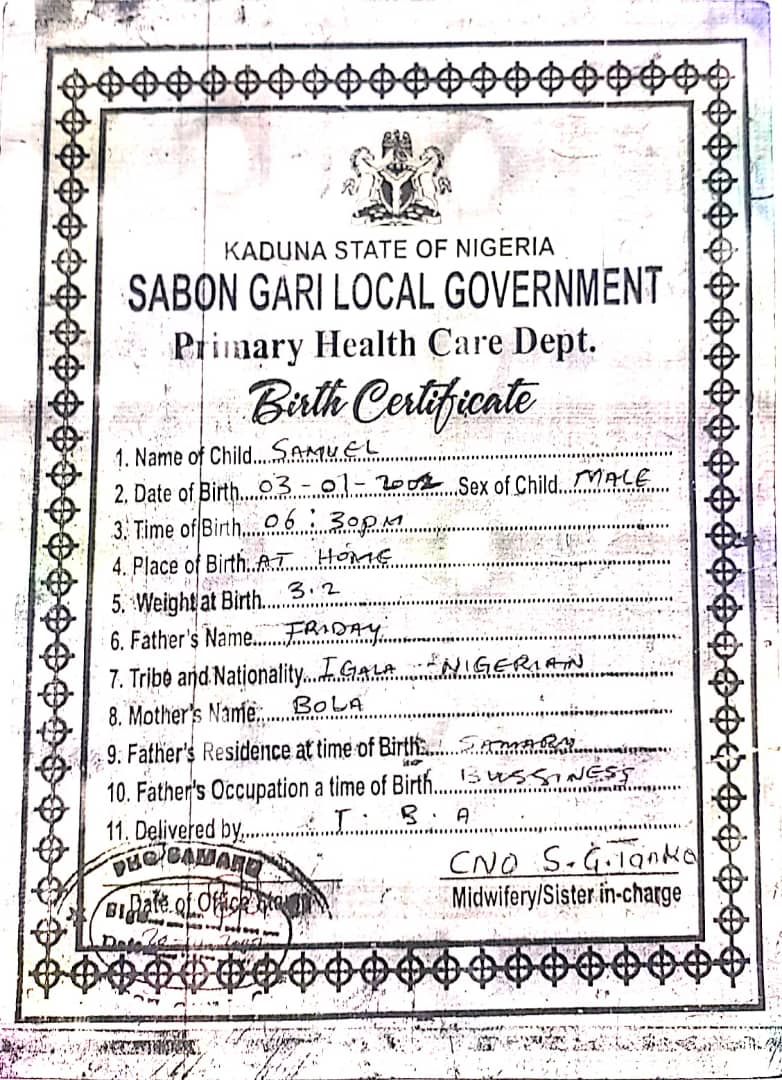 KADUNA STATE OF NIGERIA
SABON GARI LOCAL GOVERNMENT
Primary Health Care Dept.
Birth Certificate
1. Name of Child....SAMUEL
2. Date of Birth....03-01-2002 Sex of Child...MALE
3. Time of Birth....06:30PM
4. Place of Birth..AT HOME
5. Weight at Birth....3.2
6. Father's Name....FRIDAY
7. Tribe and Nationality...IGALA - NIGERIAN
8. Mother's Name...BOLA
9. Father's Residence at time of Birth...SAMARU
10. Father's Occupation a time of Birth...BUSSINESS
11. Delivered by....T.B.A
PHC SAMARU
CNO S.G.Tanko
Date of Office
Midwifery/Sister in-charge
Date